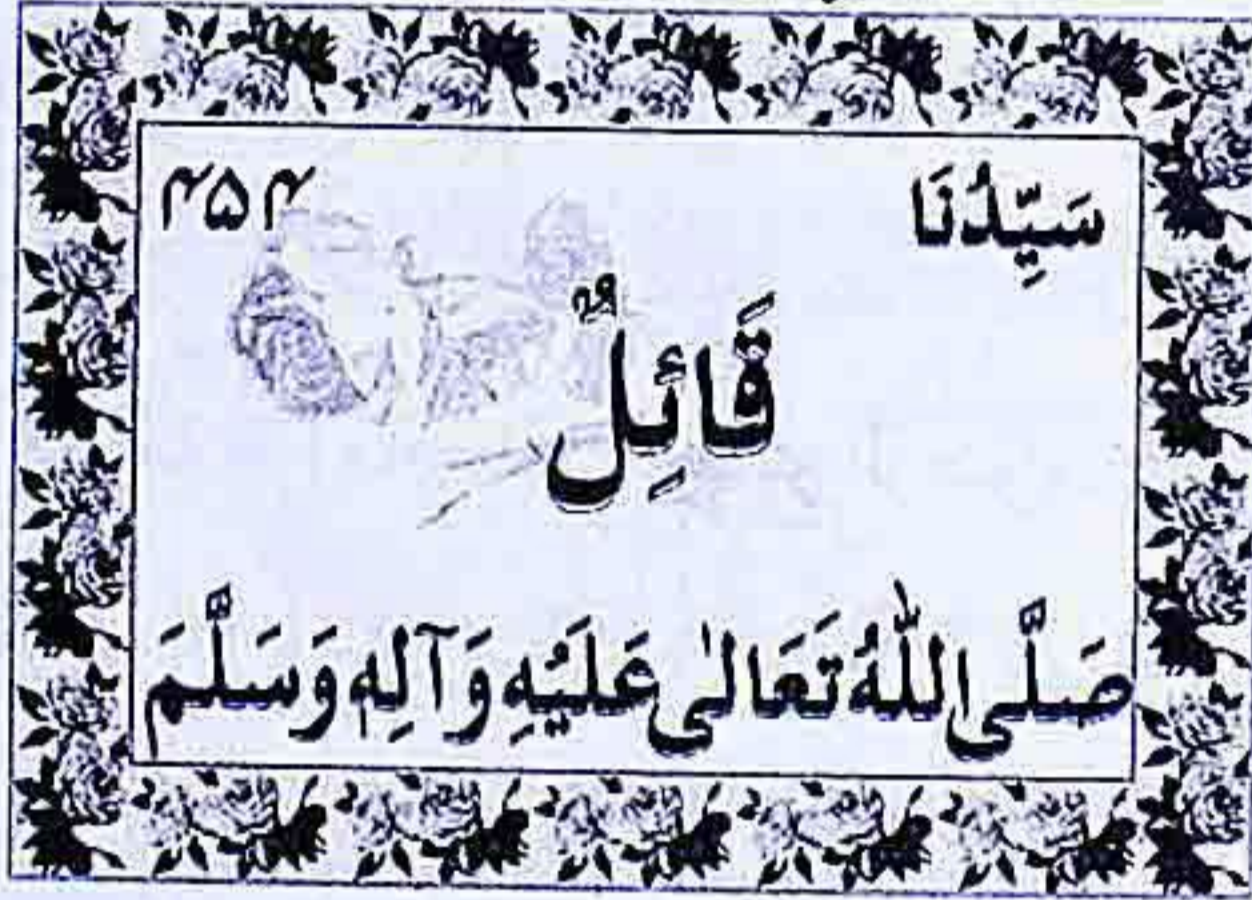 سَيِّدُنَا ۴۵۴
قَائِلٌ
صَلَّى اللّٰهُ تَعَالٰى عَلَيْهِ وَآلِهٖ وَسَلَّمَ